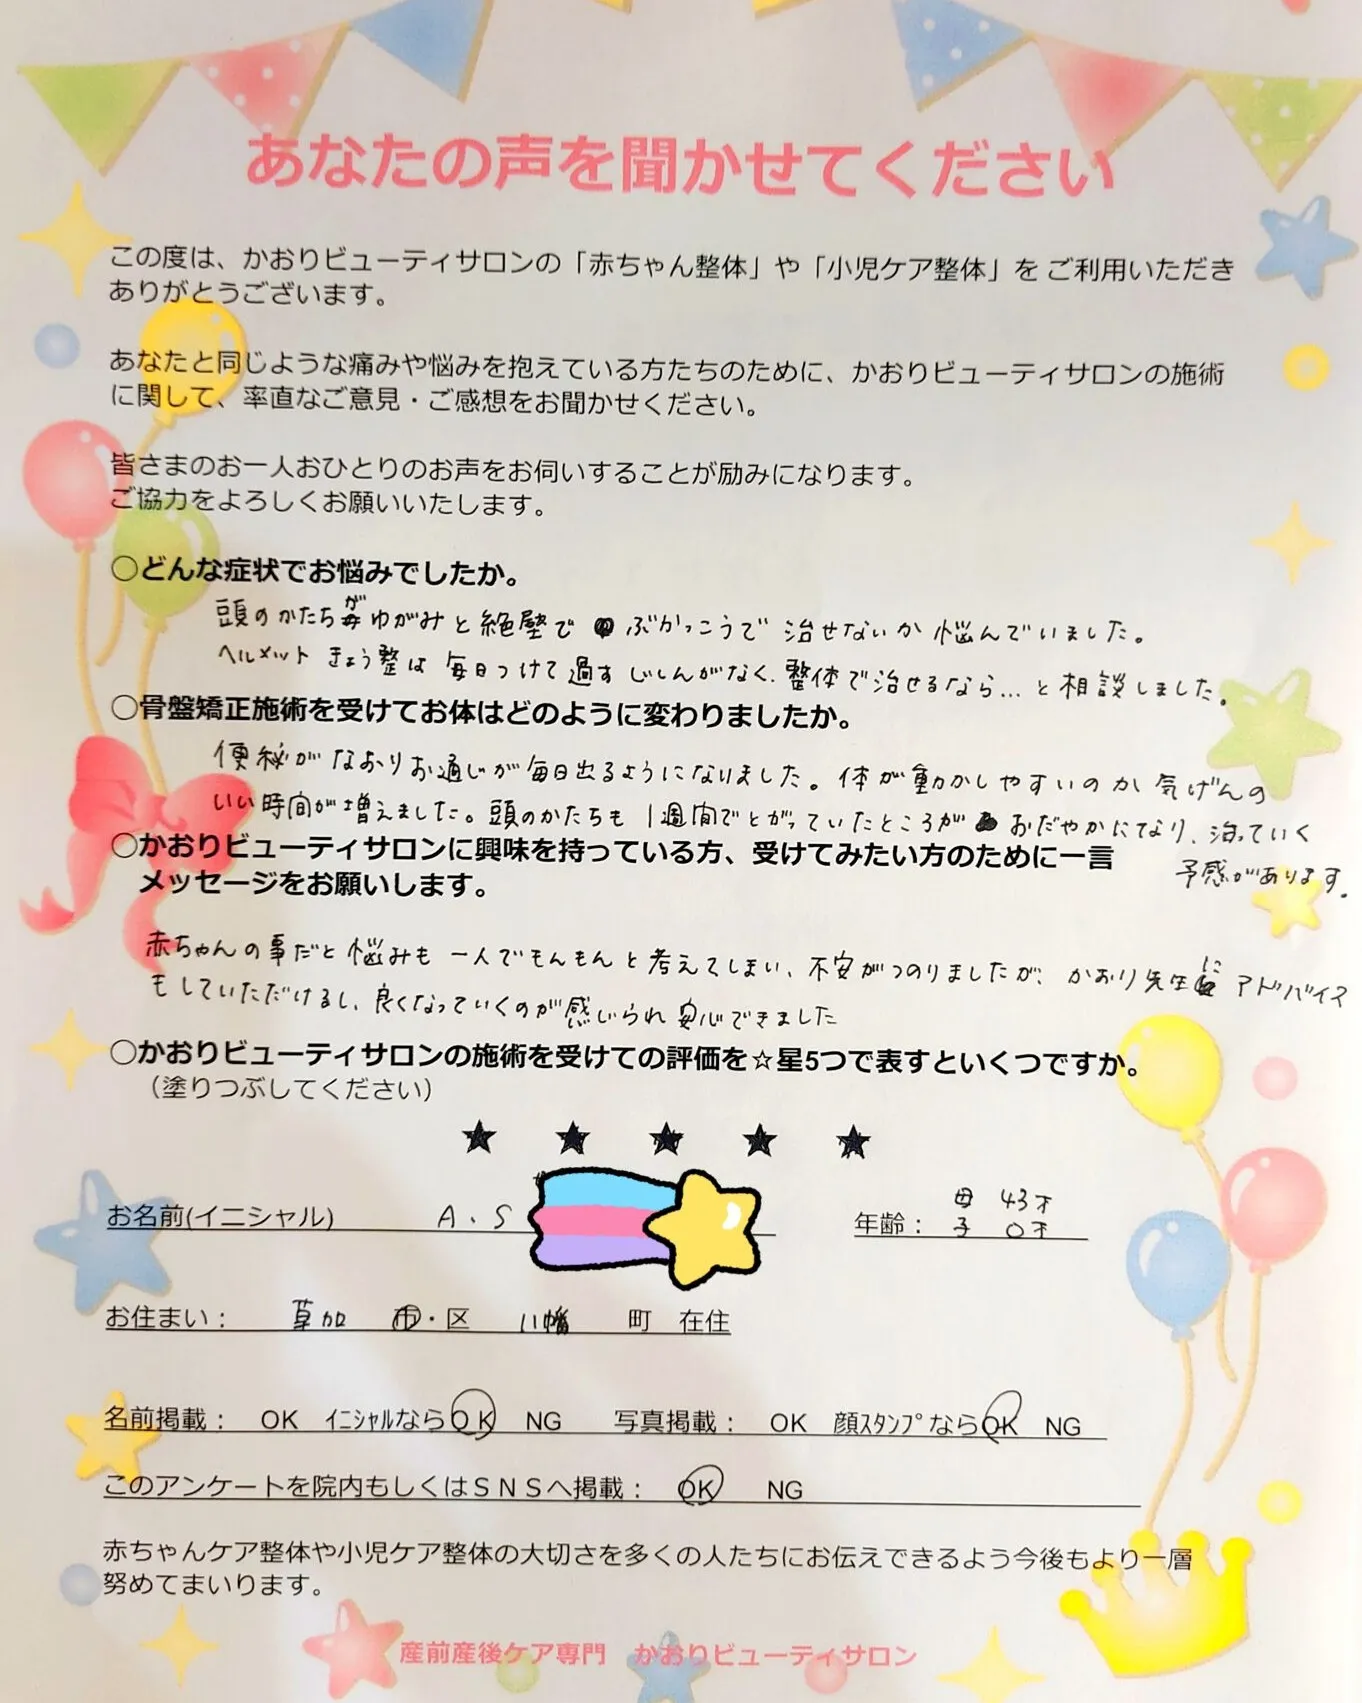 あなたの声を聞かせてください
この度は、かおりビューティサロンの「赤ちゃん整体」や「小児ケア整体」を ご利用いただき
ありがとうございます。
あなたと同じような痛みや悩みを抱えている方たちのために、かおりビューティサロンの施術
に関して、率直なご意見・ご感想をお聞かせください。
皆さまのお一人おひとりのお声をお伺いすることが励みになります。
ご協力をよろしくお願いいたします。
○どんな症状でお悩みでしたか。
頭のかたちがゆがみと絶壁でぶかっこうで治せないか悩んでいました。
ヘルメットきょう整は毎日つけて過すじしんがなく、整体で治せるなら…と相談しました。
○骨盤矯正施術を受けてお体はどのように変わりましたか。
便秘がなおりお通じが毎日出るようになりました。体が動かしやすいのか気げんの
いい時間が増えました。頭のかたちも1週間でとがっていたところがおだやかになり、治っていく
予感があります。
○かおりビューティサロンに興味を持っている方、受けてみたい方のために一言
メッセージをお願いします。
赤ちゃんの事だと悩みも一人でもんもんと考えてしまい、不安がつのりましたが、かおり先生にアドバイス
もしていただけるし、良くなっていくのが感じられ安心できました
○かおりビューティサロンの施術を受けての評価を☆星5つで表すといくつですか。
（塗りつぶしてください）
★ ★ ★ ★ ★
お名前(イニシャル) A.S 年齢： 母 43才
子 0才
お住まい： 草加 市・区 八幡 町 在住
名前掲載： OK ｲﾆｼｬﾙならOK NG 写真掲載： OK 顔ｽﾀﾝﾌﾟならOK NG
このアンケートを院内もしくはＳＮＳへ掲載： OK NG
赤ちゃんケア整体や小児ケア整体の大切さを多くの人たちにお伝えできるよう今後もより一層
努めてまいります。
産前産後ケア専門 かおりビューティサロン